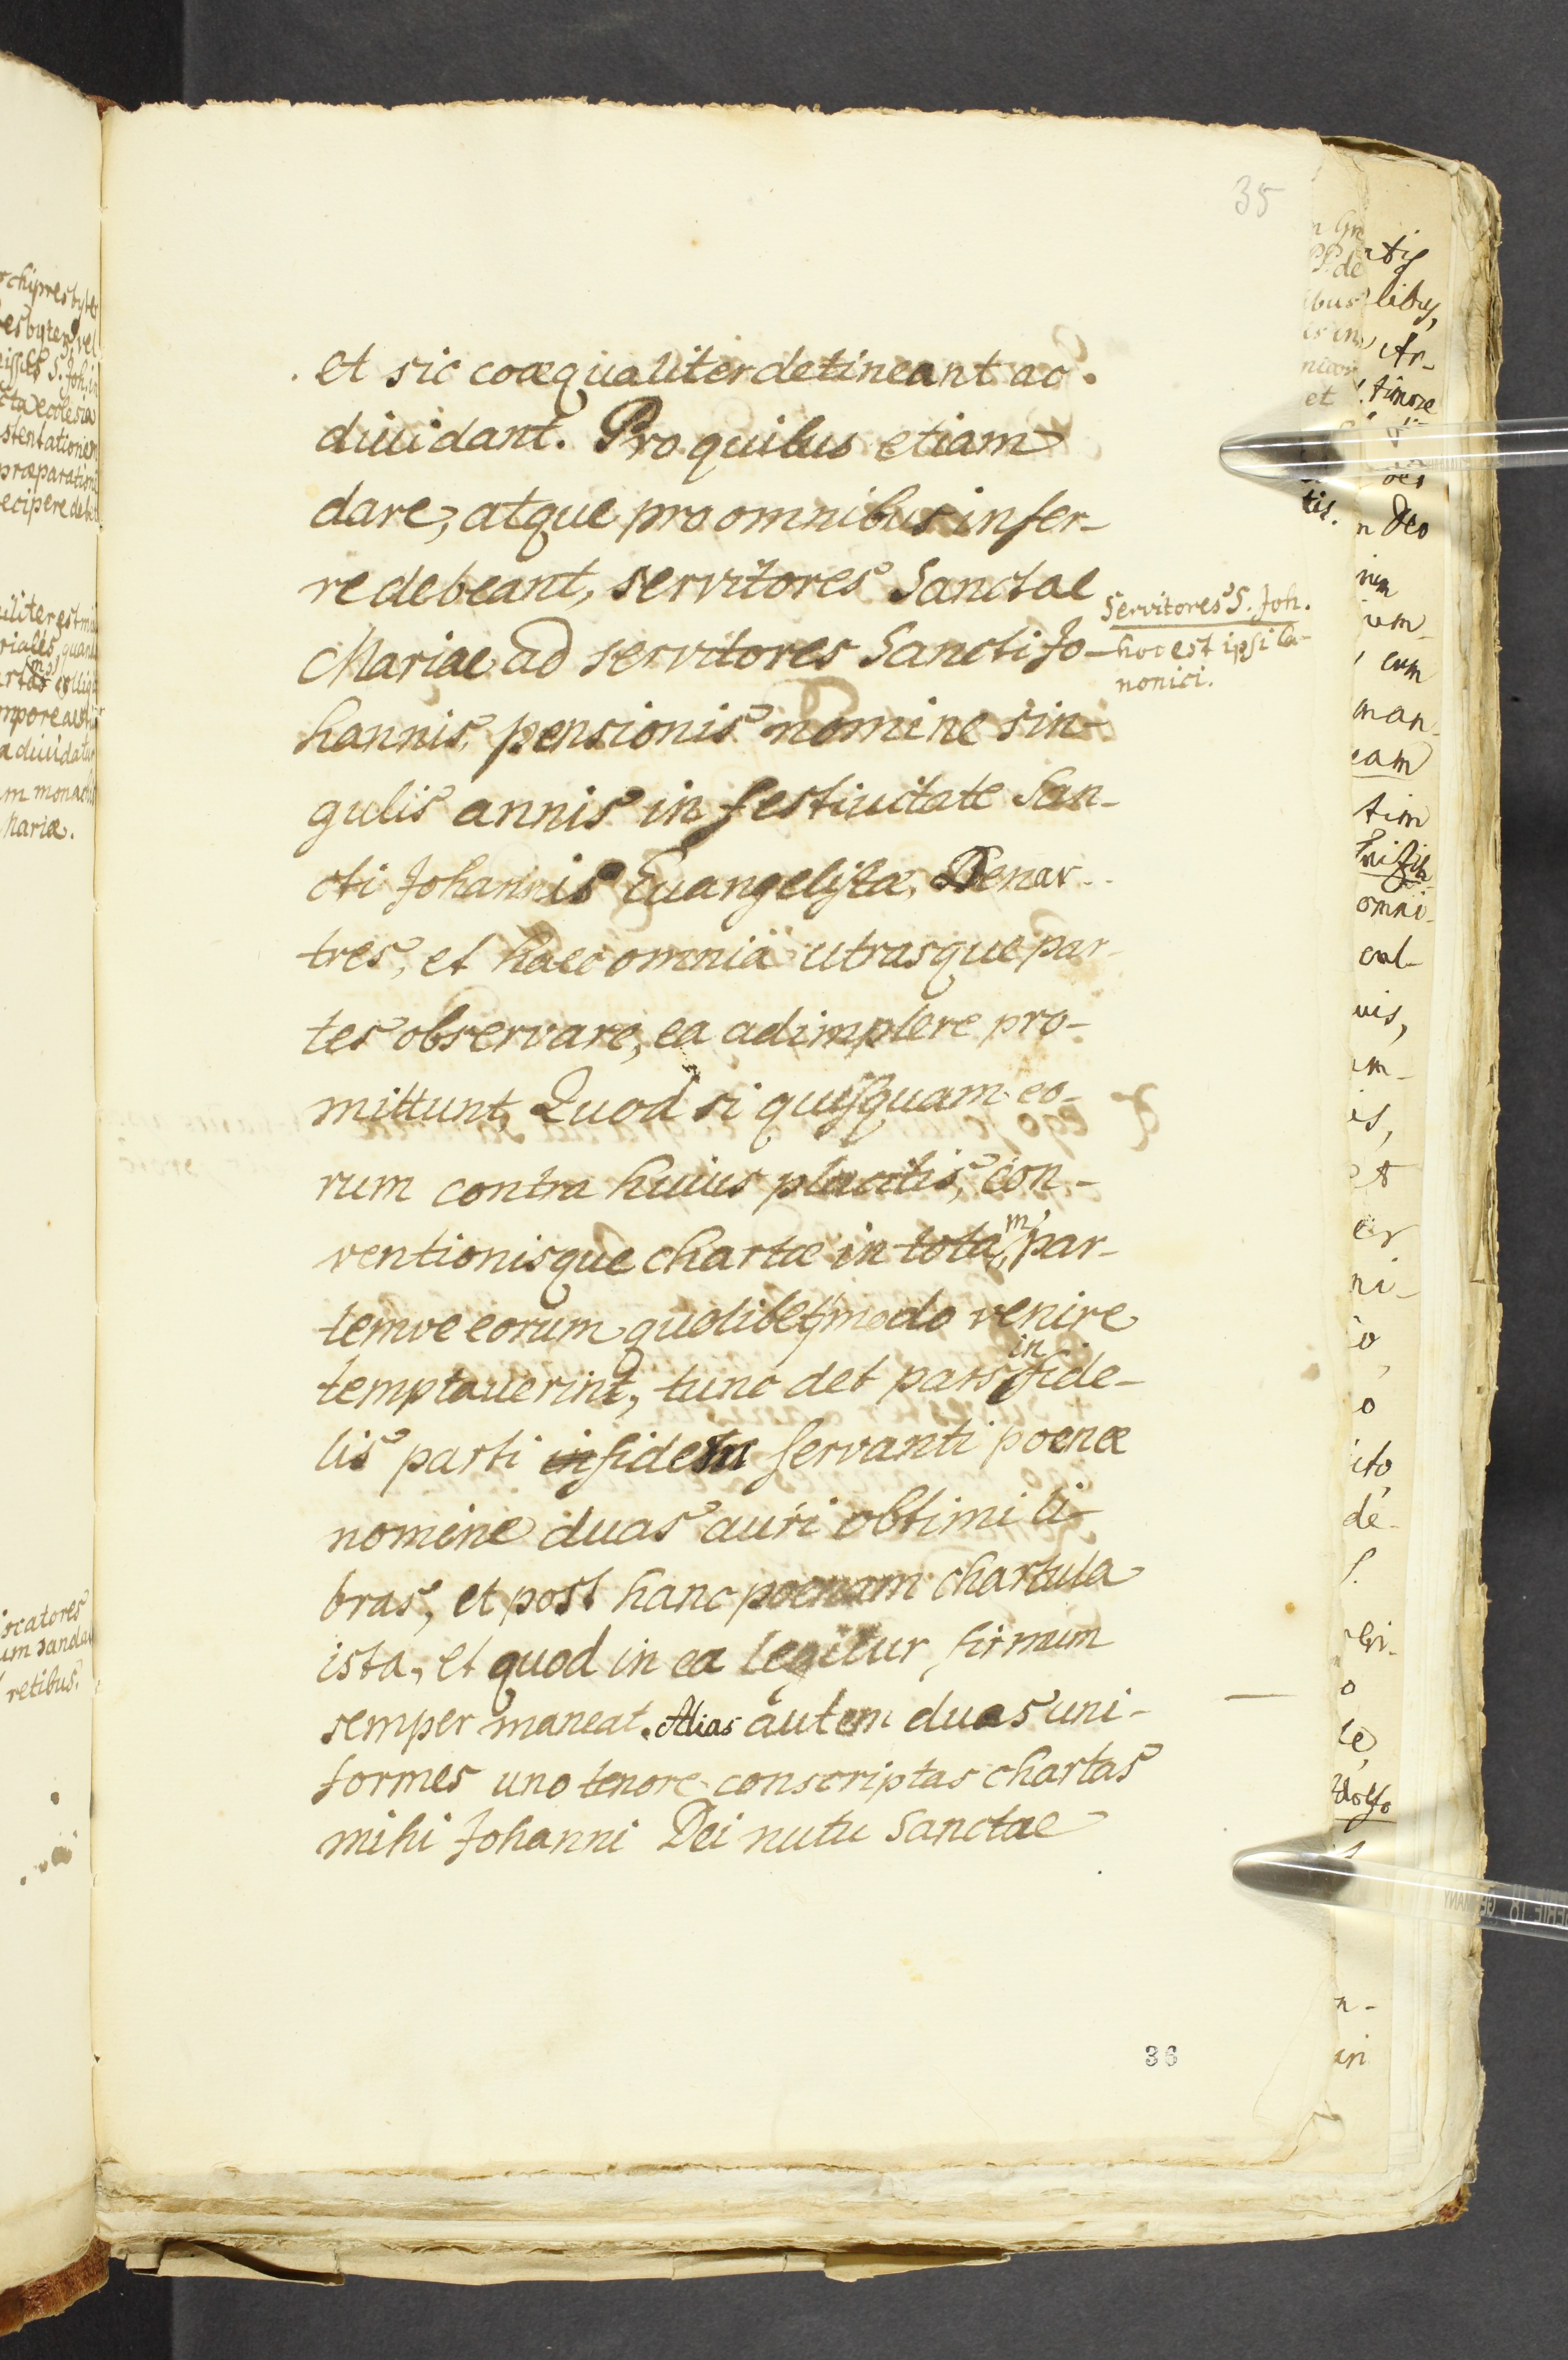 35
et sic coæqualiter detineant ac
diuidant. Pro quibus etiam
dare, atque pro omnibus infer-
re debeant, servitores Sanctae
Mariae ad servitores Sancti Jo-
hannis, pensionis nomine sin-
gulis annis in festiuitate San-
cti Johannis Euangelistæ, Denar..
tres, et haec omnia utrasque par-
tes observare, ea adimplere pro-
mittunt, Quod si quisquam eo-
rum contra huius placitis, con-
ventionisque chartæ in totam, par-
temve eorum quolibet modo venire
temptauerint, tunc det pars infide-
lis parti infidem servanti poenæ
nomine duas auri obtimi li-
bras, et post hanc poenam chartula
ista, et quod in ea legitur, firmum
semper maneat. Alias autem duas uni-
formes uno tenore conscriptas chartas
mihi Johanni Dei nutu Sanctae
Servitores S. Joh.
hoc est ipsi Ca-
nonici.
36